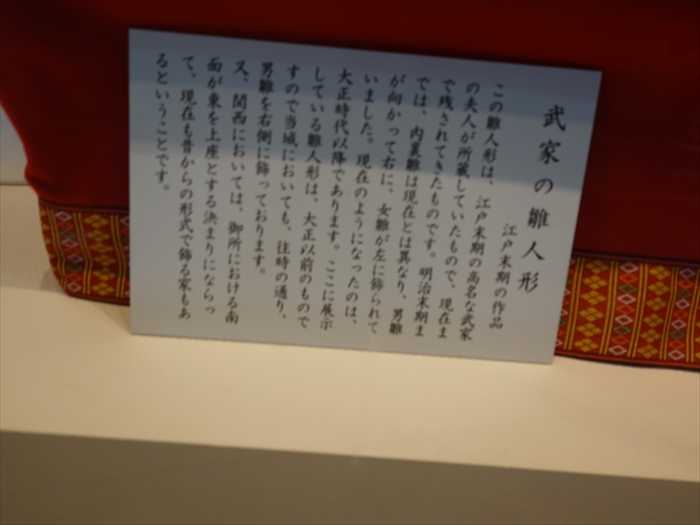 武家の雛人形
江戸末期の作品
この雛人形は、江戸末期の高名な武家
の夫人が所蔵していたもので、現在ま
で残されてきたものです。明治末期ま
では、内裏雛は現在とは異なり、男雛
が向かって右に、女雛が左に飾られて
いました。現在のようになったのは、
大正時代以降であります。ここに展示
している雛人形は、大正以前のもので
すので当城においても、往時の通り、
男雛を右側に飾っております。
又、関西においては、御所における南
面が東を上座とする決まりにならっ
て、現在も昔からの形式で飾る家もあ
るということです。